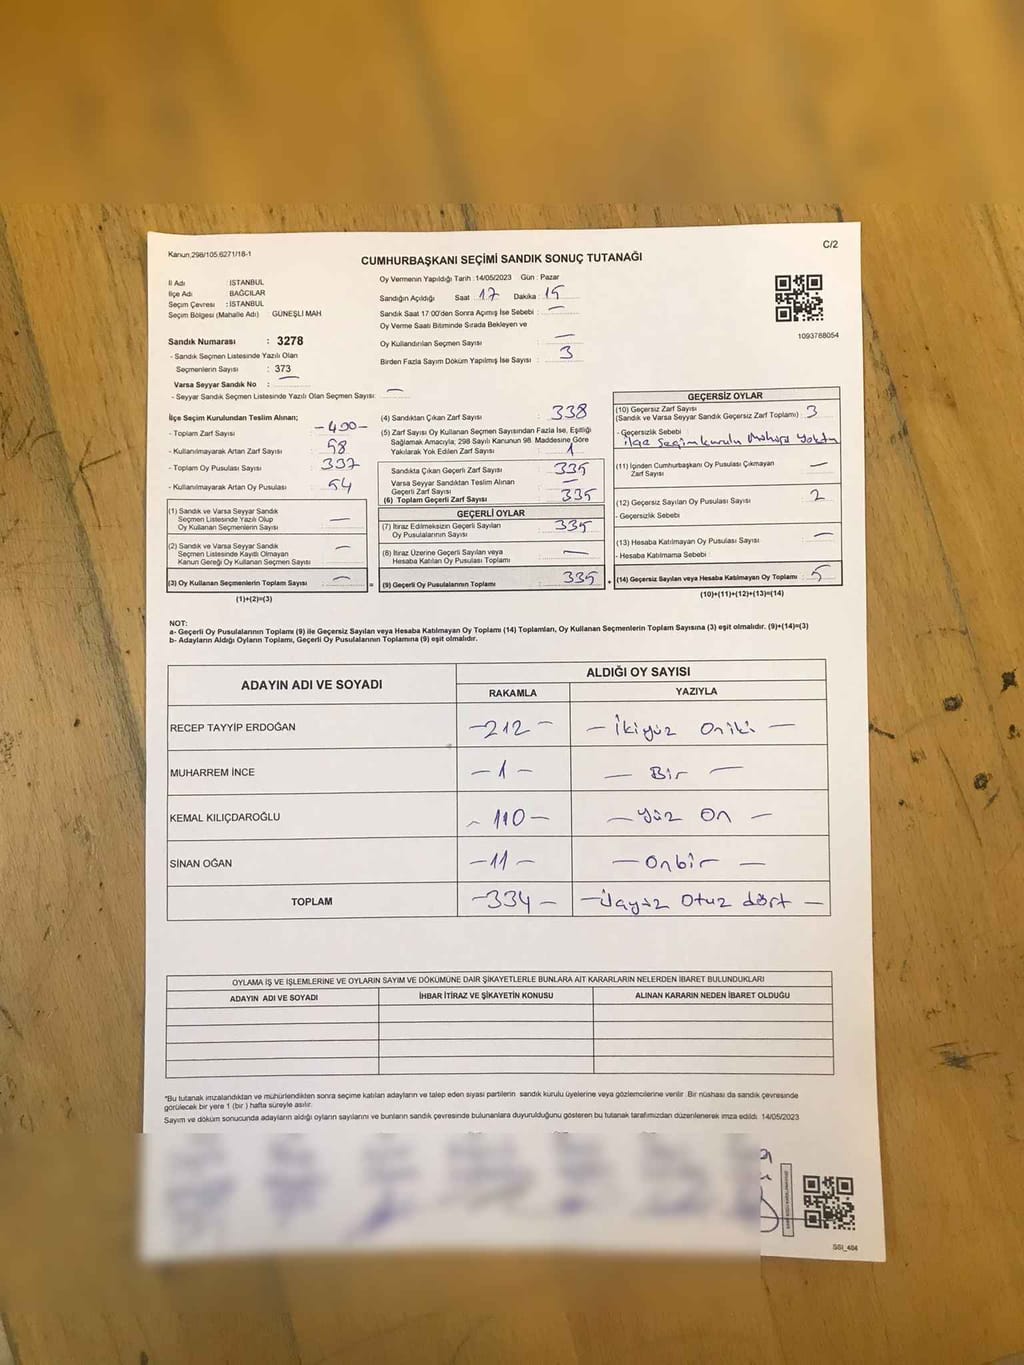 Kanun,298/105,6271/18-1
C/2
CUMHURBAŞKANI SEÇİMİ SANDIK SONUÇ TUTANAĞI
İl Adı : İSTANBUL
İlçe Adı : BAĞCILAR
Seçim Çevresi : İSTANBUL
Seçim Bölgesi (Mahalle Adı) : GÜNEŞLİ MAH
Sandık Numarası : 3278
- Sandık Seçmen Listesinde Yazılı Olan
Seçmenlerin Sayısı : 373
Varsa Seyyar Sandık No : —
- Seyyar Sandık Seçmen Listesinde Yazılı Olan Seçmen Sayısı: —
Oy Vermenin Yapıldığı Tarih : 14/05/2023 Gün : Pazar
Sandığın Açıldığı Saat : 17 Dakika : 15
Sandık Saat 17:00'den Sonra Açımış İse Sebebi : —
Oy Verme Saati Bitiminde Sırada Bekleyen ve
Oy Kullandırılan Seçmen Sayısı : —
Birden Fazla Sayım Döküm Yapılmış İse Sayısı : 3
1093768054
İlçe Seçim Kurulundan Teslim Alınan;
- Toplam Zarf Sayısı : -400-
- Kullanılmayarak Artan Zarf Sayısı : 58
- Toplam Oy Pusulası Sayısı : 337
- Kullanılmayarak Artan Oy Pusulası : 54
(1) Sandık ve Varsa Seyyar Sandık
Seçmen Listesinde Yazılı Olup
Oy Kullanan Seçmenlerin Sayısı : —
(2) Sandık ve Varsa Seyyar Sandık
Seçmen Listesinde Kayıtlı Olmayan
Kanun Gereği Oy Kullanan Seçmen Sayısı : —
(3) Oy Kullanan Seçmenlerin Toplam Sayısı : — =
(1)+(2)=(3)
(4) Sandıktan Çıkan Zarf Sayısı : 338
(5) Zarf Sayısı Oy Kullanan Seçmen Sayısından Fazla İse, Eşitliği
Sağlamak Amacıyla; 298 Sayılı Kanunun 98. Maddesine Göre
Yakılarak Yok Edilen Zarf Sayısı : 1
Sandıkta Çıkan Geçerli Zarf Sayısı : 335
Varsa Seyyar Sandıktan Teslim Alınan
Geçerli Zarf Sayısı : —
(6) Toplam Geçerli Zarf Sayısı : 335
GEÇERLİ OYLAR
(7) İtiraz Edilmeksizin Geçerli Sayılan
Oy Pusulasının Sayısı : 335
(8) İtiraz Üzerine Geçerli Sayılan veya
Hesaba Katılan Oy Pusulası Toplamı : —
(9) Geçerli Oy Pusulalarının Toplamı : 335 +
GEÇERSİZ OYLAR
(10) Geçersiz Zarf Sayısı
(Sandık ve Varsa Seyyar Sandık Geçersiz Zarf Toplamı) : 3
- Geçersizlik Sebebi
ilçe seçim kurulu Mührü Yoktu
(11) İçinden Cumhurbaşkanı Oy Pusulası Çıkmayan
Zarf Sayısı : —
(12) Geçersiz Sayılan Oy Pusulası Sayısı : 2
- Geçersizlik Sebebi
(13) Hesaba Katılmayan Oy Pusulası Sayısı : —
- Hesaba Katılmama Sebebi
(14) Geçersiz Sayılan veya Hesaba Katılmayan Oy Toplamı : 5
(10)+(11)+(12)+(13)=(14)
NOT:
a- Geçerli Oy Pusulalarının Toplamı (9) ile Geçersiz Sayılan veya Hesaba Katılmayan Oy Toplamı (14) Toplamları, Oy Kullanan Seçmenlerin Toplam Sayısına (3) eşit olmalıdır. (9)+(14)=(3)
b- Adayların Aldığı Oyların Toplamı, Geçerli Oy Pusulalarının Toplamına (9) eşit olmalıdır.
ADAYIN ADI VE SOYADI
ALDIĞI OY SAYISI
RAKAMLA YAZIYLA
RECEP TAYYİP ERDOĞAN -212- - İkiyüz Oniki -
MUHARREM İNCE -1- - Bir -
KEMAL KILIÇDAROĞLU -110- - Yüz On -
SİNAN OĞAN -11- - Onbir -
TOPLAM -334- -Üçyüz Otuz dört -
OYLAMA İŞ VE İŞLEMLERİNE VE OYLARIN SAYIM VE DÖKÜMÜNE DAİR ŞİKAYETLERLE BUNLARA AİT KARARLARIN NELERDEN İBARET BULUNDUKLARI
ADAYIN ADI VE SOYADI İHBAR İTİRAZ VE ŞİKAYETİN KONUSU ALINAN KARARIN NEDEN İBARET OLDUĞU
*Bu tutanak imzalandıktan ve mühürlendikten sonra seçime katılan adayların ve talep eden siyasi partilerin sandık kurulu üyelerine veya gözlemcilerine verilir. Bir nüshası da sandık çevresinde
görülecek bir yere 1 (bir ) hafta süreyle asılır.
Sayım ve döküm sonucunda adayların aldığı oyların sayılarını ve bunların sandık çevresinde bulunanlara duyurulduğunu gösteren bu tutanak tarafımızdan düzenlenerek imza edildi. 14/05/2023
SSI_404